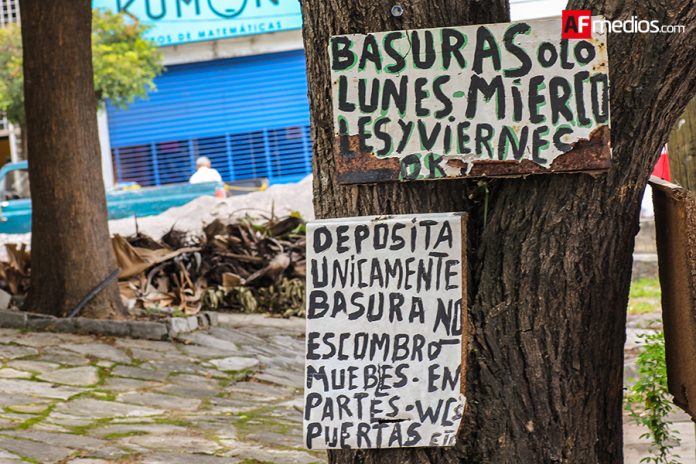 KUMON
OS DE MATEMÁTICAS
AFmedios.com
BASURA SOLO
LUNES-MIERCO
LES Y VIERNES
OK
DEPOSITA
UNICAMENTE
BASURA NO
ESCOMBRO-
MUEBES-EN
PARTES-WCS
PUERTAS ETC